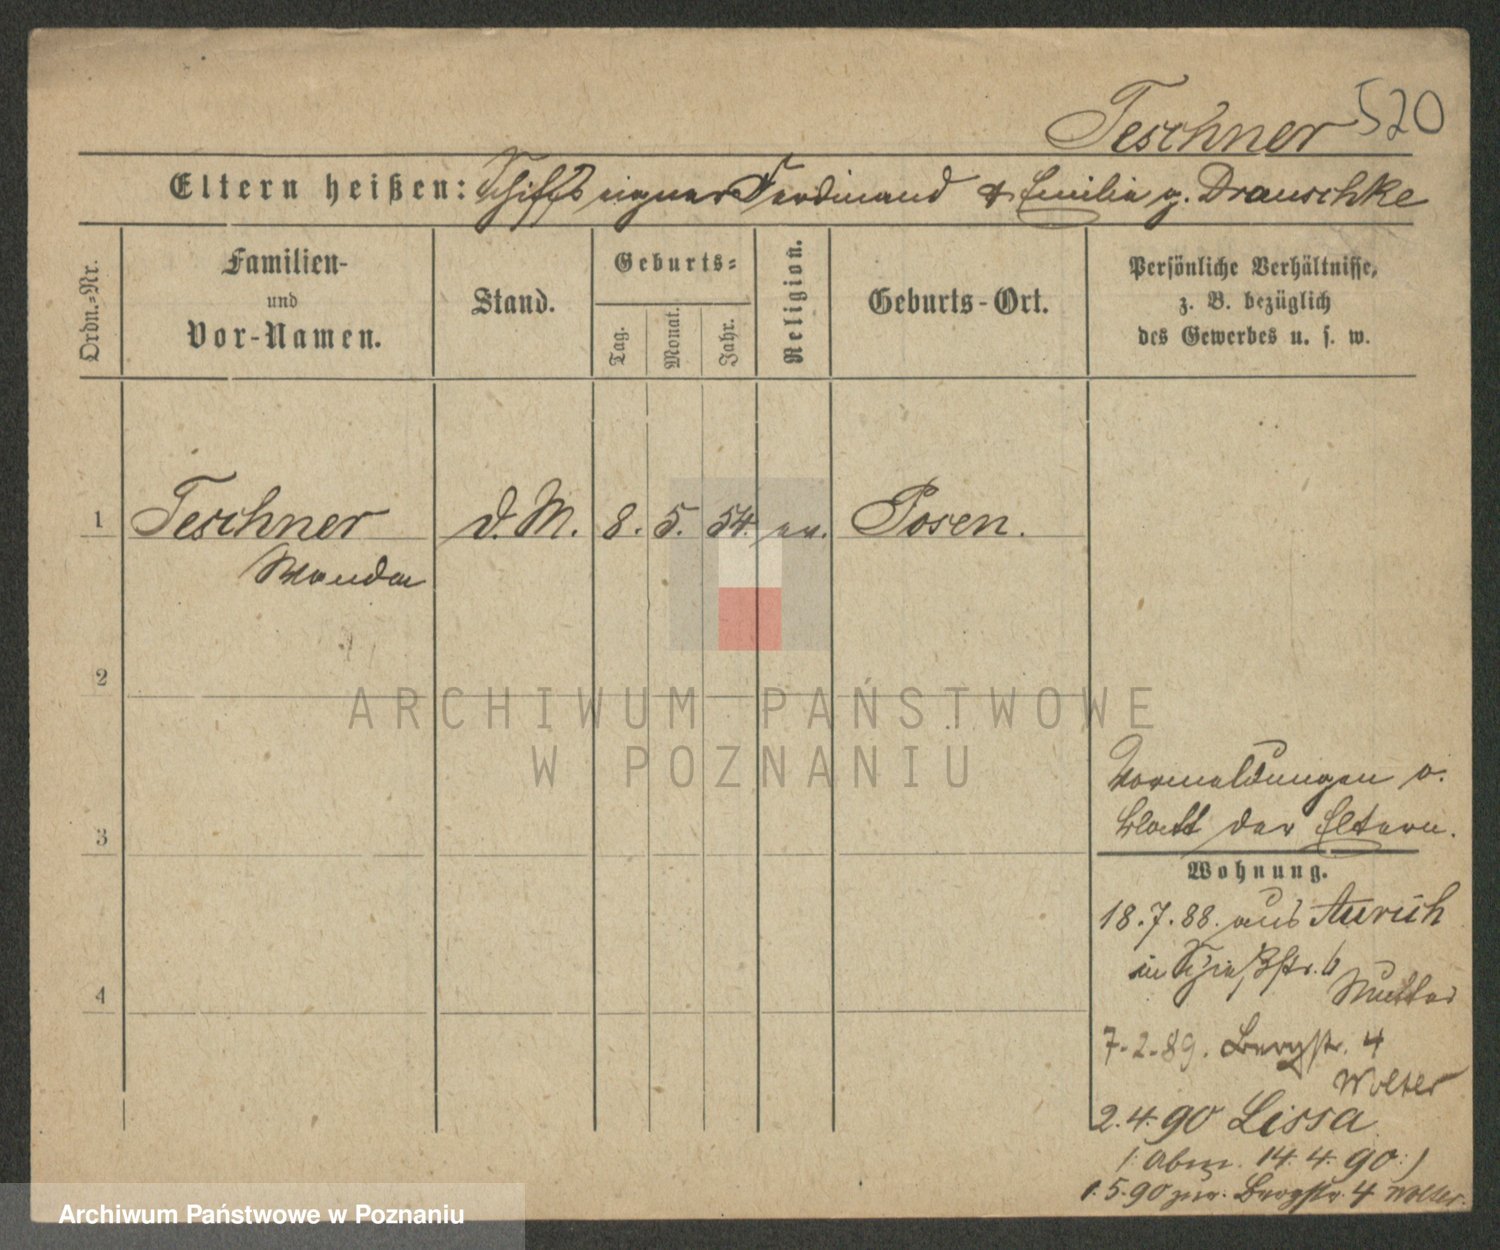 Teschner 520
Eltern heißen: Schiffseigner Ferdinand & Emilie g. Drauschke
Ordn.=Nr.
Familien-
und
Vor-Namen.
Stand.
Geburts=
Tag.
Monat.
Jahr.
Religion.
Geburts-Ort.
Persönliche Verhältnisse,
z. B. bezüglich
des Gewerbes u. s. w.
1 Teschner d. M. 8. 5. 54. ev. Posen.
Wanda
2
ARCHIWUM PAŃSTWOWE
W POZNANIU
Vormeldungen s.
3 Blatt der Eltern.
Wohnung.
18.7.88. aus Aurich
in Schießstr. 6
4 Mutter
7-2-89. Bergstr. 4
Wolter
2.4.90 Lissa
/: Abm. 14.4.90 :/
1.5.90 zur. Bergstr. 4 Wolter.
Archiwum Państwowe w Poznaniu